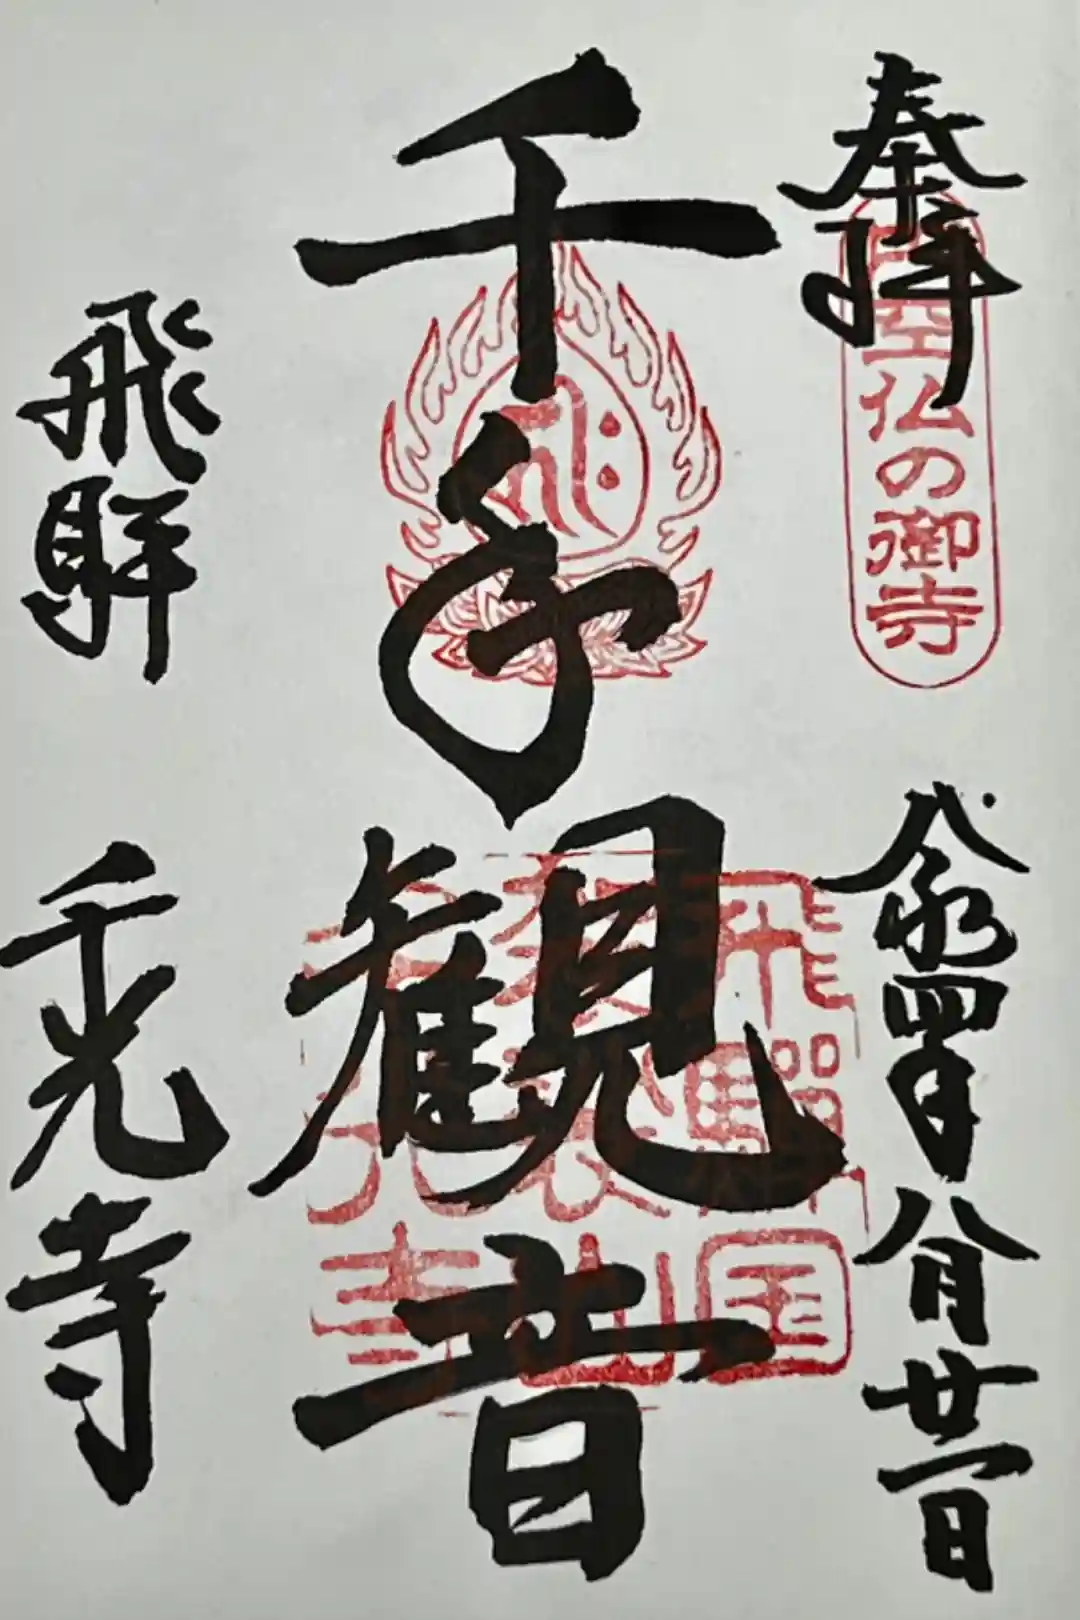 奉拝
円空仏の御寺
令和四年八月廿一日
千手観音
飛驒国
袈裟山
千光寺
飛騨
千光寺